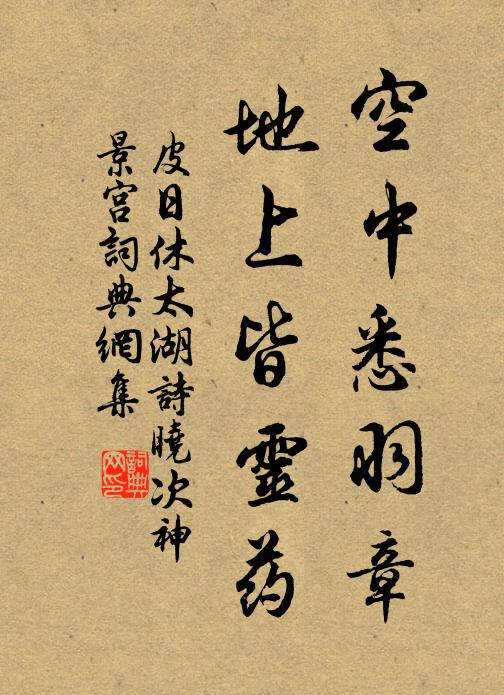 空中悉羽章
地上皆靈药
皮日休太湖詩曉次神
景宫詞典網集
詞典网印